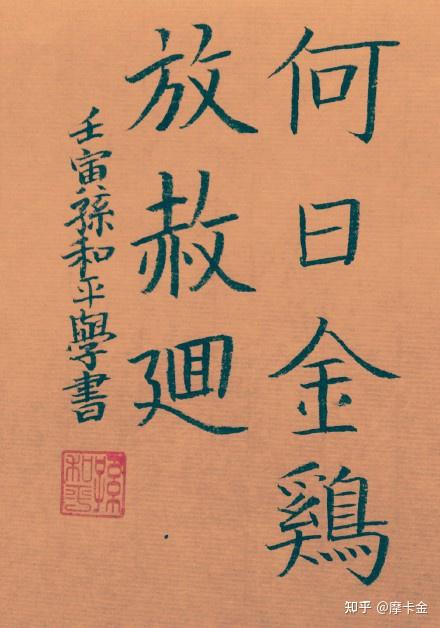 何日金鷄
放赦廻
壬寅孫和平學書
孫和平
知乎 @摩卡金